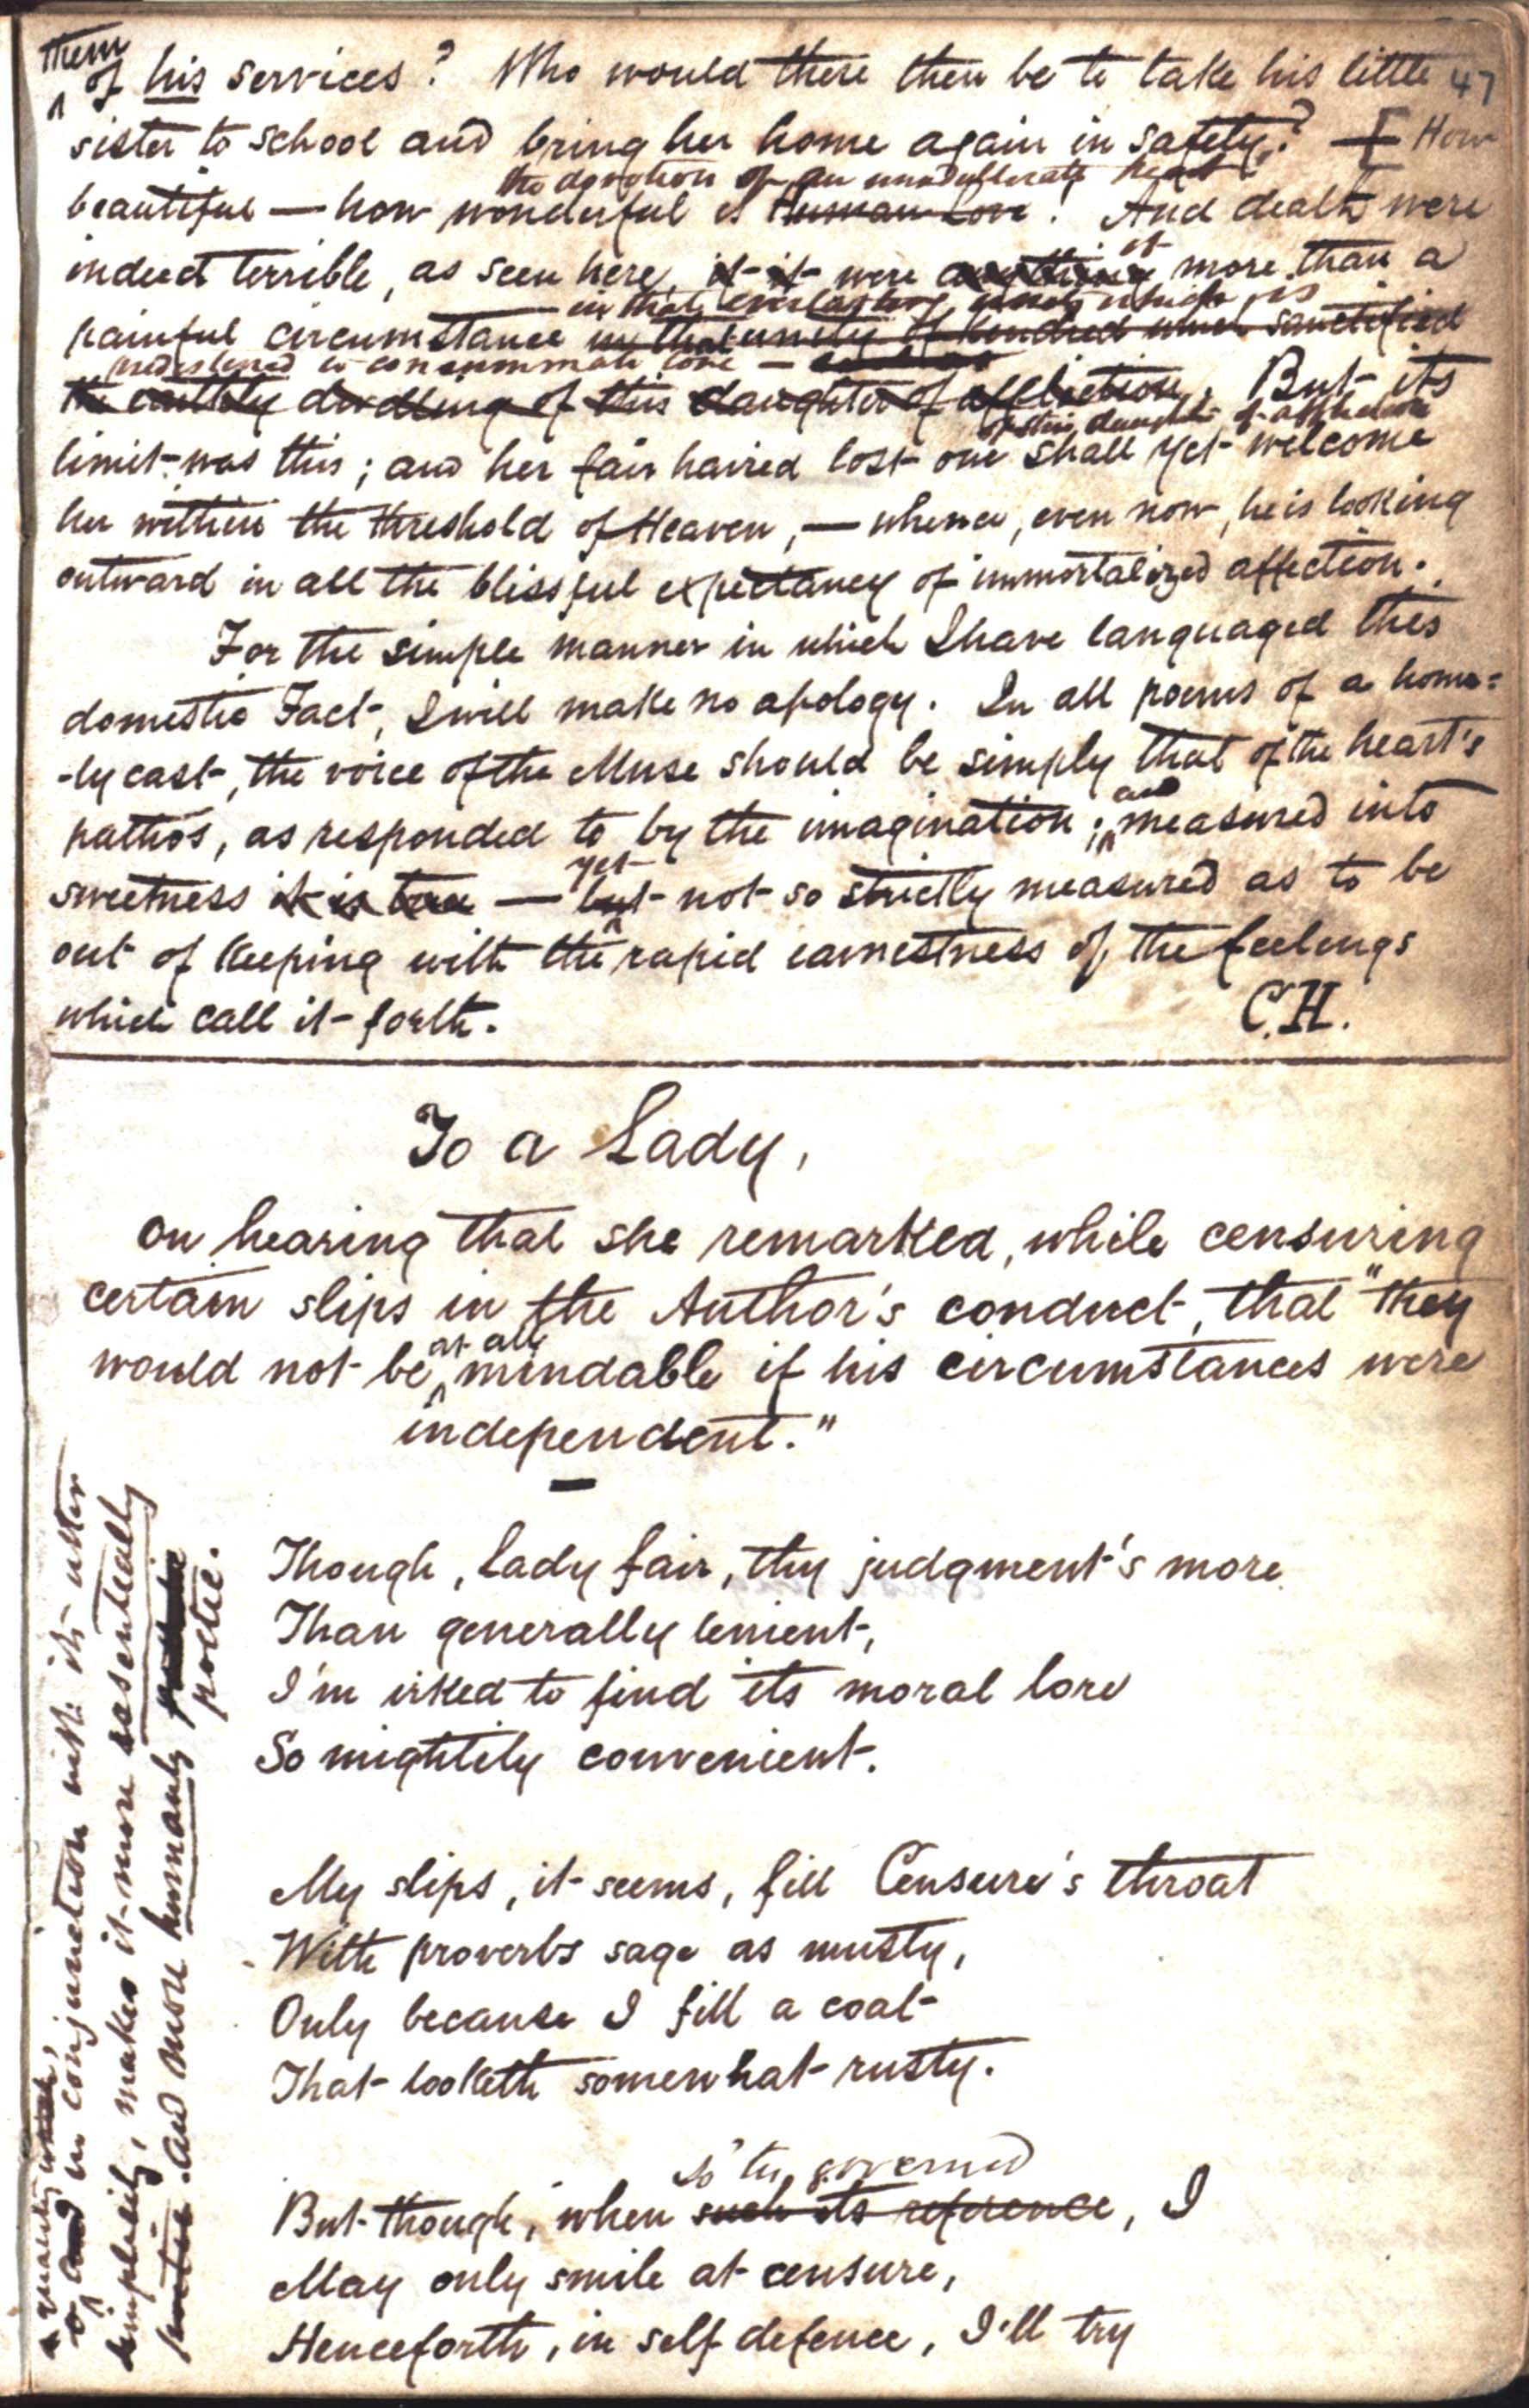 them
of his services? Who would there then be to take his little 47
sister to school and bring her home again in safety? — [How
the devotion of an unadulterate heart
beautiful — how wonderful is Human Love! And death were
indeed terrible, as seen here, if it were anything more than a
in that everlasting unity which is
painful circumstance in that unity of kindred which sanctified
predestened to consummate love —
the earthly dwelling of this daughter of affliction. But its
of this daughter of affliction
limit was this; and her fair haired lost one shall yet welcome
her within the threshold of Heaven, — whence, even now, he is looking
outward in all the blissful expectancy of immortalized affection.
For the simple manner in which I have languaged this
domestic Fact, I will make no apology. In all poems of a home=
-ly cast, the voice of the Muse should be simply that of the heart's
and
pathos, as responded to by the imagination; measured into
yet
sweetness it is true — but not so strictly measured as to be
out of keeping with the rapid earnestness of the feelings
which call it forth. C.H.
To a Lady,
on hearing that she remarked, while censuring
certain slips in the Author's conduct, that "they
at all
would not be mindable if his circumstances were
independent."
Though, Lady fair, thy judgment's more
Than generally lenient,
I'm irked to find its moral lore
So mightily convenient.
My slips, it seems, fill Censure's throat
With proverbs sage as musty,
Only because I fill a coat
That looketh somewhat rusty.
so governed
But though, when such its reference, I
May only smile at censure,
Henceforth, in self defence, I'll try
a quality which,
and in conjunction with its utter
simplicity, makes it more essentially
and more humanly
poetic.